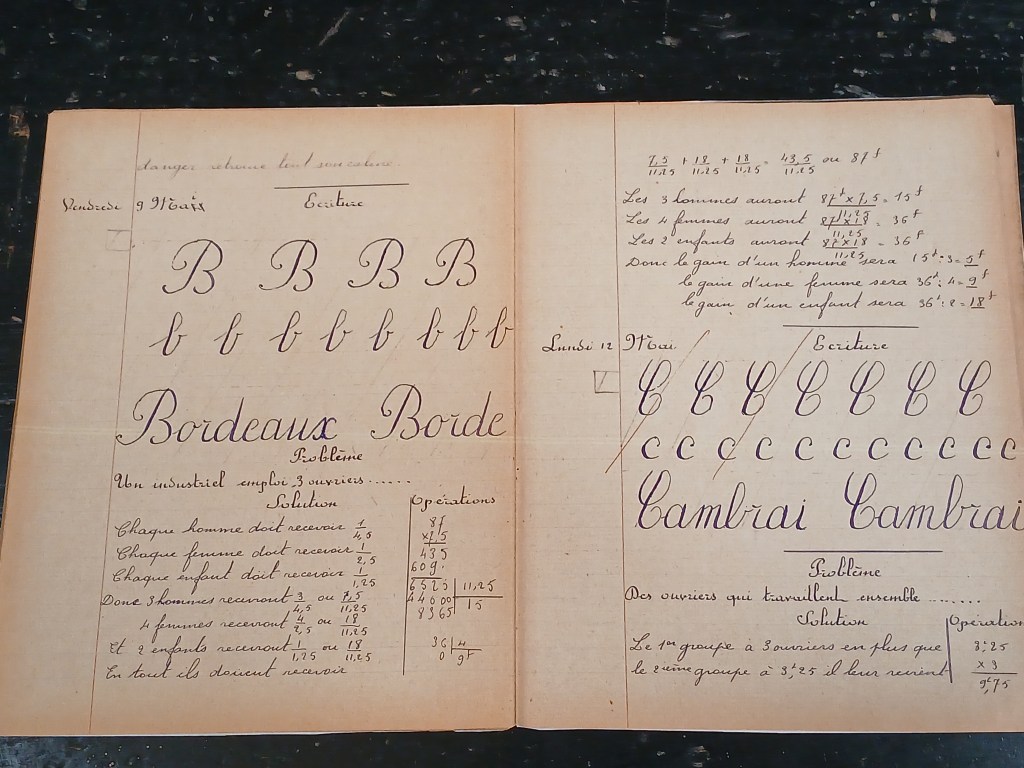 danger retrouve tout son calme.
Vendredi 9 Mai
Ecriture
B B B B
b b b b b b b b
Bordeaux Borde
Problème
Un industriel emploi 3 ouvriers......
Solution
Opérations
Chaque homme doit recevoir 1/4,5
Chaque femme doit recevoir 1/2,5
Chaque enfant doit recevoir 1/1,25
Donc 3 hommes recevront 3/4,5 ou 7,5/11,25
4 femmes recevront 4/2,5 ou 18/11,25
Et 2 enfants recevront 1/1,25 ou 18/11,25
En tout ils doivent recevoir
87
x7,5
435
609.
6525 | 11,25
44000 | 15
8365
36 | 4
0 | 9f
7,5/11,25 + 18/11,25 + 18/11,25 = 43,5/11,25 ou 87f
Les 3 hommes auront 87f x 7,5/11,25 = 15f
Les 4 femmes auront 87 x 18/11,25 = 36f
Les 2 enfants auront 87 x 18/11,25 = 36f
Donc le gain d'un homme sera 15f : 3 = 5f
le gain d'une femme sera 36f : 4 = 9f
le gain d'un enfant sera 36f : 2 = 18f
Lundi 12 Mai
Ecriture
C C C C C C C
c c c c c c c c c c c
Cambrai Cambrai
Problème
Des ouvriers qui travaillent ensemble ........
Solution
Opération
Le 1er groupe à 3 ouvriers en plus que
le 2ième groupe à 3f,25 il leur revient
3f,25
x 3
9f,75